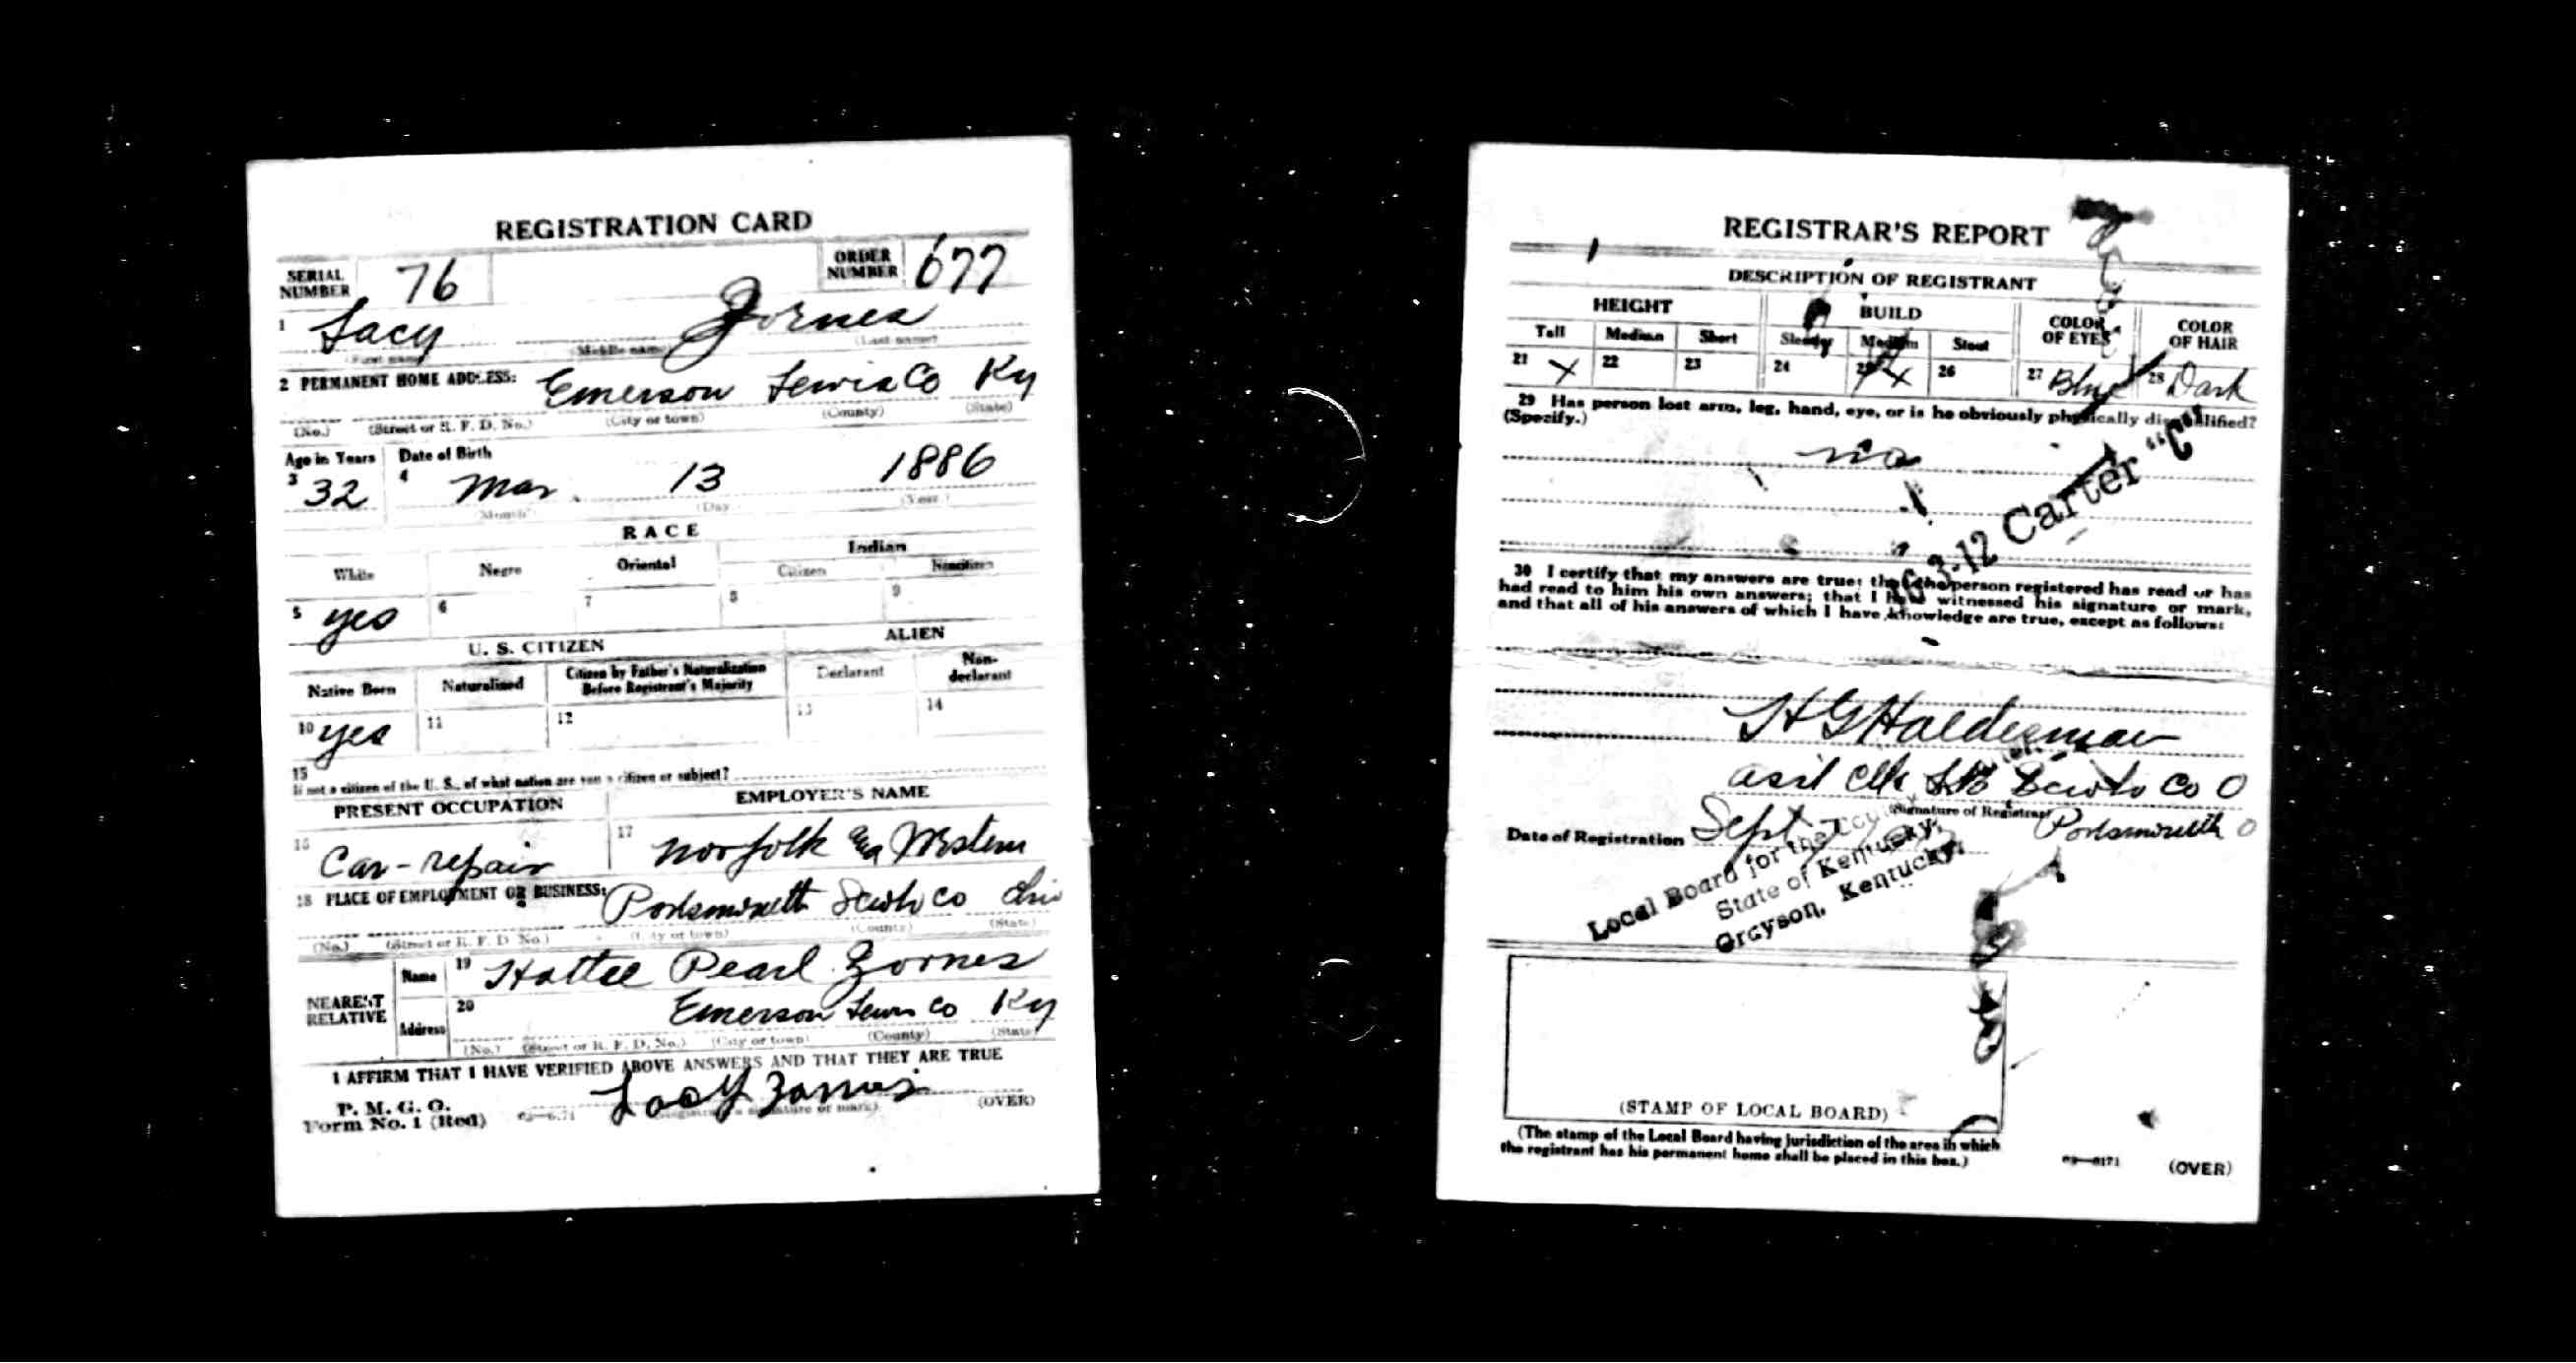 REGISTRATION CARD
SERIAL NUMBER 76 ORDER NUMBER 677
1 Lacy Zornes
(First name) (Middle name) (Last name)
2 PERMANENT HOME ADDRESS: Emerson Lewis Co Ky
(No.) (Street or R. F. D. No.) (City or town) (County) (State)
Age in Years Date of Birth
3 32 4 Mar 13 1886
(Month) (Day) (Year)
RACE
White Negro Oriental Indian
Citizen Noncitizen
5 yes 6 7 8 9
U. S. CITIZEN ALIEN
Native Born Naturalized Citizen by Father's Naturalization Before Registrant's Majority Declarant Non-declarant
10 yes 11 12 13 14
15
If not a citizen of the U. S., of what nation are you a citizen or subject?
PRESENT OCCUPATION EMPLOYER'S NAME
16 Car-repair 17 Norfolk Western
18 PLACE OF EMPLOYMENT OR BUSINESS: Portsmouth Scioto Co Ohio
(No.) (Street or R. F. D. No.) (City or town) (County) (State)
NEAREST RELATIVE
Name 19 Hattie Pearl Zornes
Address 20 Emerson Lewis Co Ky
(No.) (Street or R. F. D. No.) (City or town) (County) (State)
I AFFIRM THAT I HAVE VERIFIED ABOVE ANSWERS AND THAT THEY ARE TRUE
P. M. G. O.
Form No. 1 (Red) Lacy Zornes (OVER)
(Registrant's signature or mark)
REGISTRAR'S REPORT
DESCRIPTION OF REGISTRANT
HEIGHT BUILD COLOR OF EYES COLOR OF HAIR
Tall Medium Short Slender Medium Stout
21 X 22 23 24 25 X 26 27 Blue 28 Dark
29 Has person lost arm, leg, hand, eye, or is he obviously physically disqualified?
(Specify.)
no
16-3-12 Carter "C"
30 I certify that my answers are true; that the person registered has read or has
had read to him his own answers; that I have witnessed his signature or mark,
and that all of his answers of which I have knowledge are true, except as follows:
H G Halderman
Scioto Co O
(Signature of Registrar)
Date of Registration Sept Portsmouth O
Local Board for the County
State of Kentucky,
Grayson, Kentucky.
(STAMP OF LOCAL BOARD)
(The stamp of the Local Board having jurisdiction of the area in which
the registrant has his permanent home shall be placed in this box.)
03—6171 (OVER)